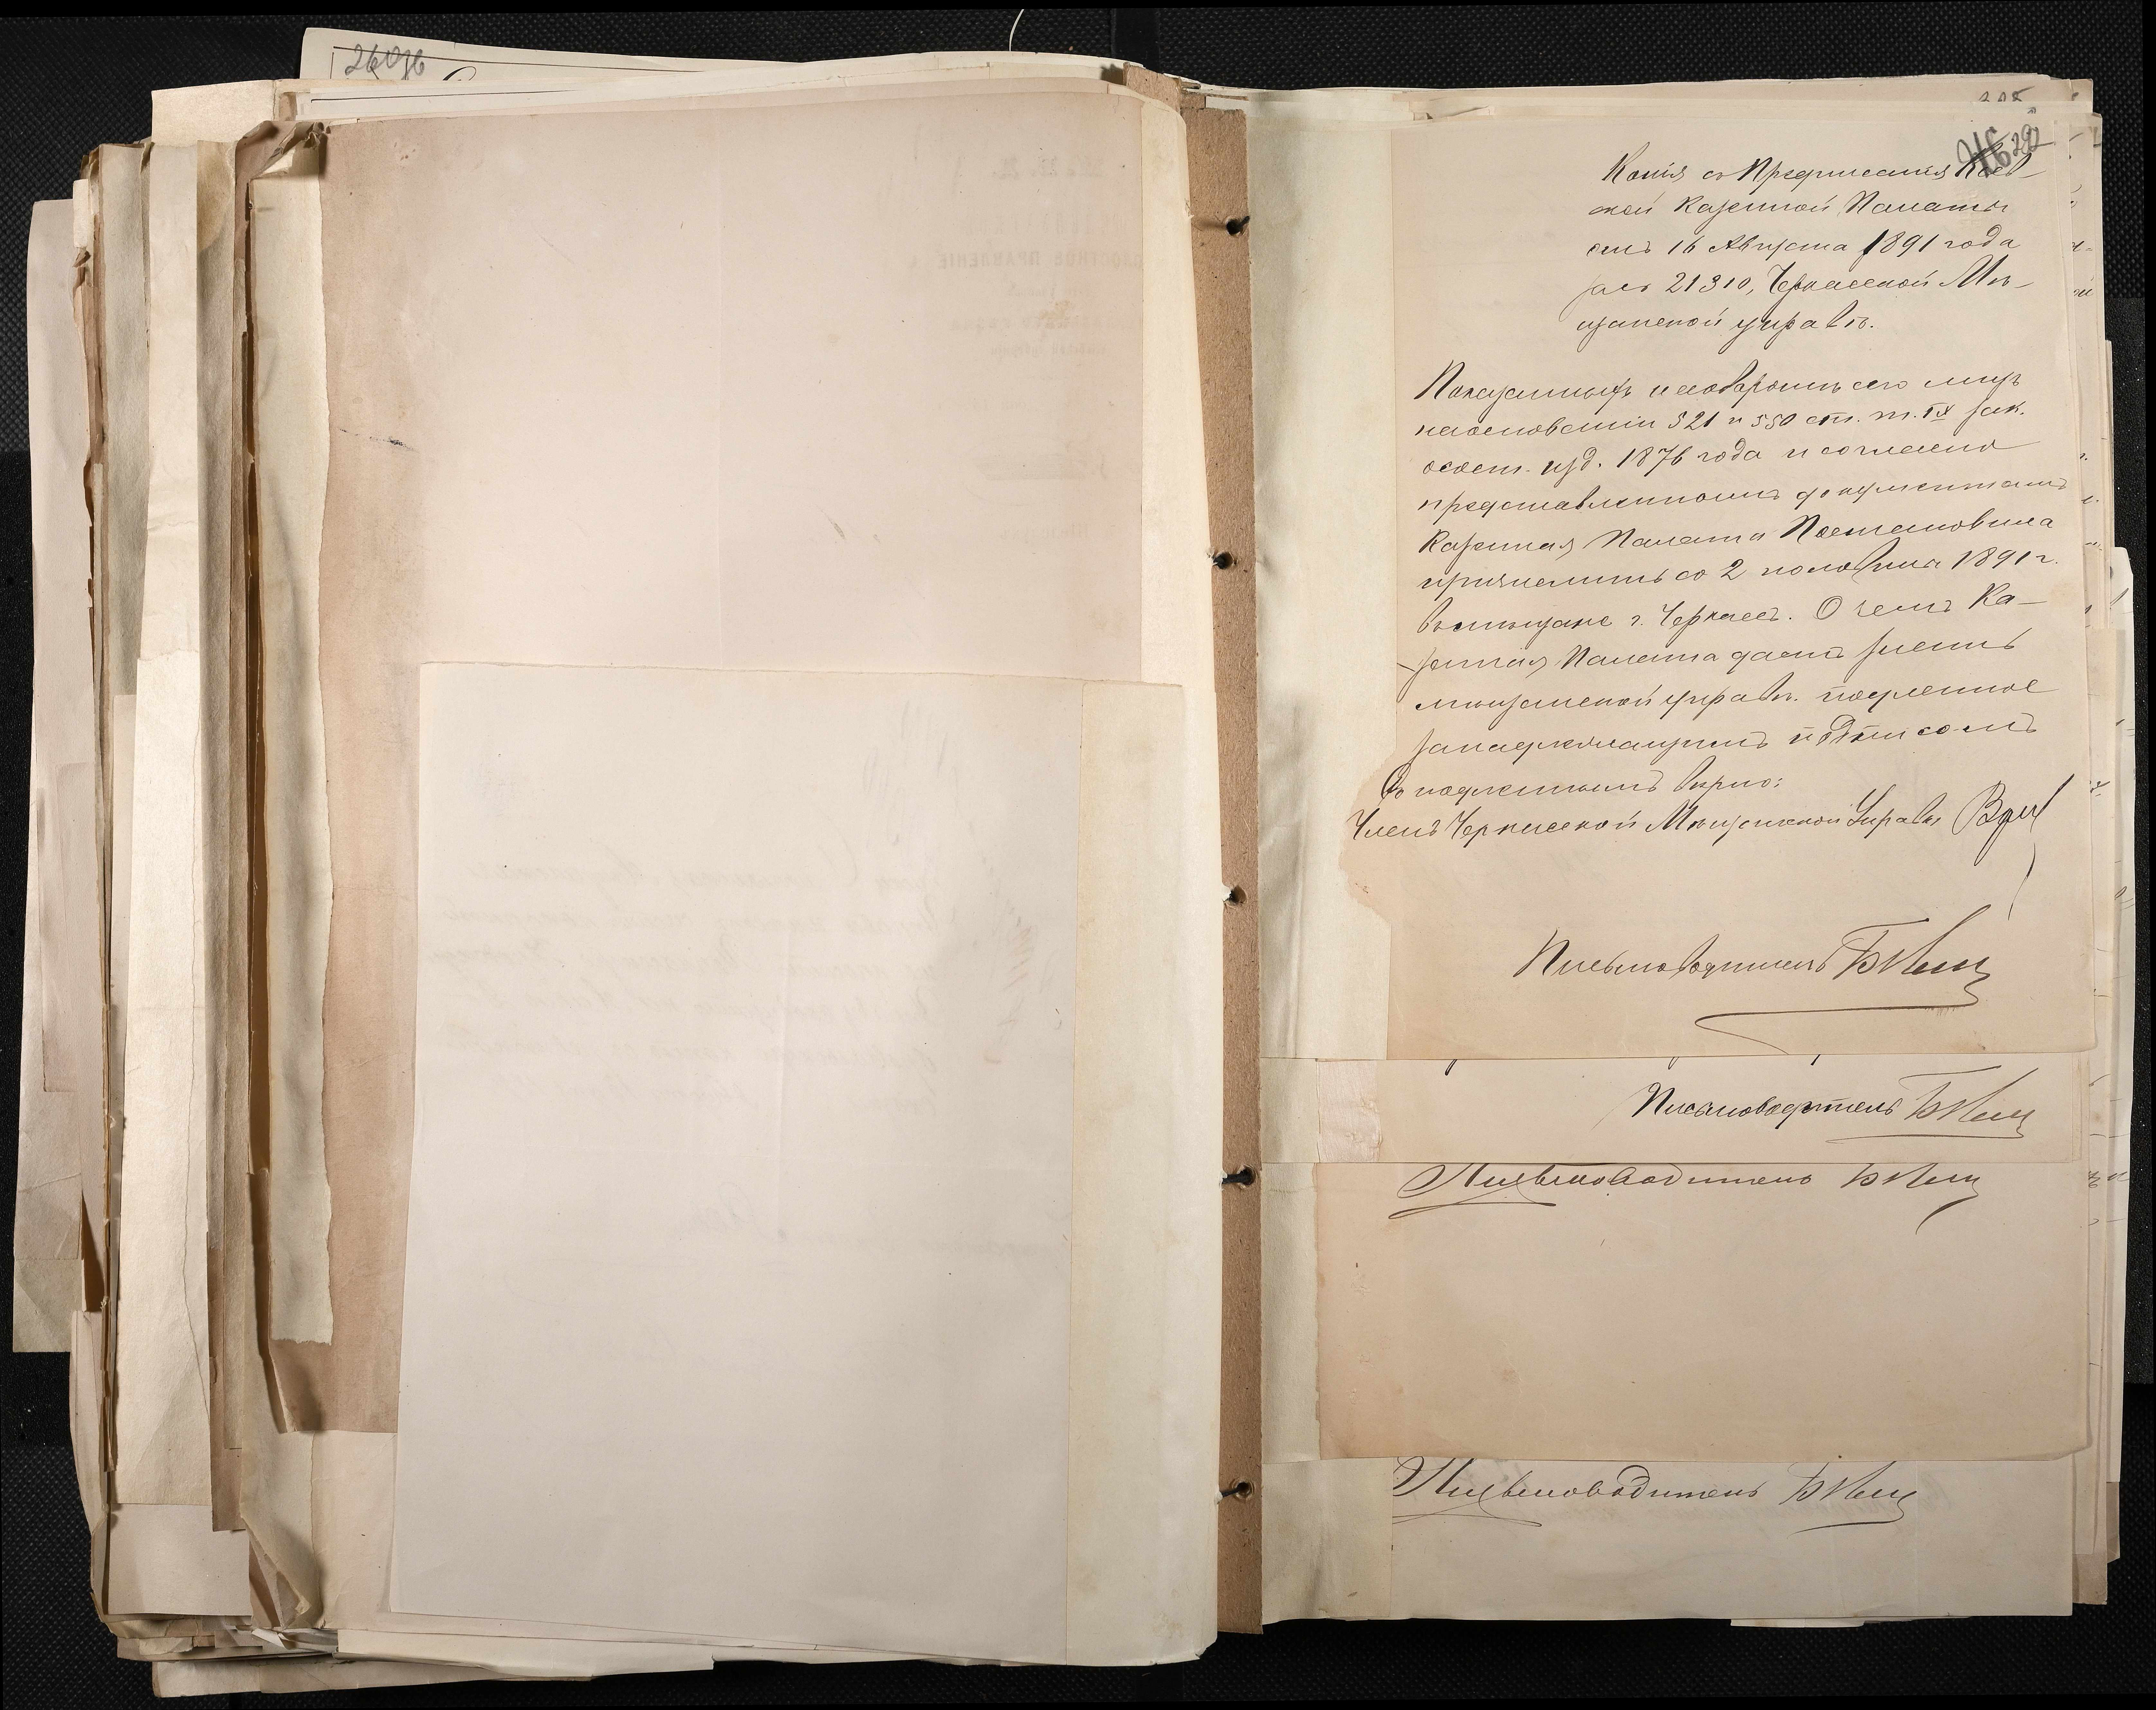 26096
292
Копія съ Предписанія Кіев-
ской Казенной Палаты
отъ 16 Августа 1891 года
за № 21310, Черкасской Мѣ-
щанской управѣ.
Показанныхъ на оборотѣ сего лицъ
на основаніи 521 и 550 ст. т. IX зак.
о сост. изд. 1876 года и согласно
представленнымъ документамъ
Казенная Палата Постановила
причислить со 2 половины 1891 г.
въ мѣщане г. Черкассъ. О чемъ Ка-
зенная Палата даетъ знать
мѣщанской управѣ. подленное
за надлежащимъ подписомъ
Съ подленнымъ вѣрно:
Членъ Черкасской Мѣщанской Управы
Письмоводитель
Письмоводитель
Письмоводитель
Письмоводитель